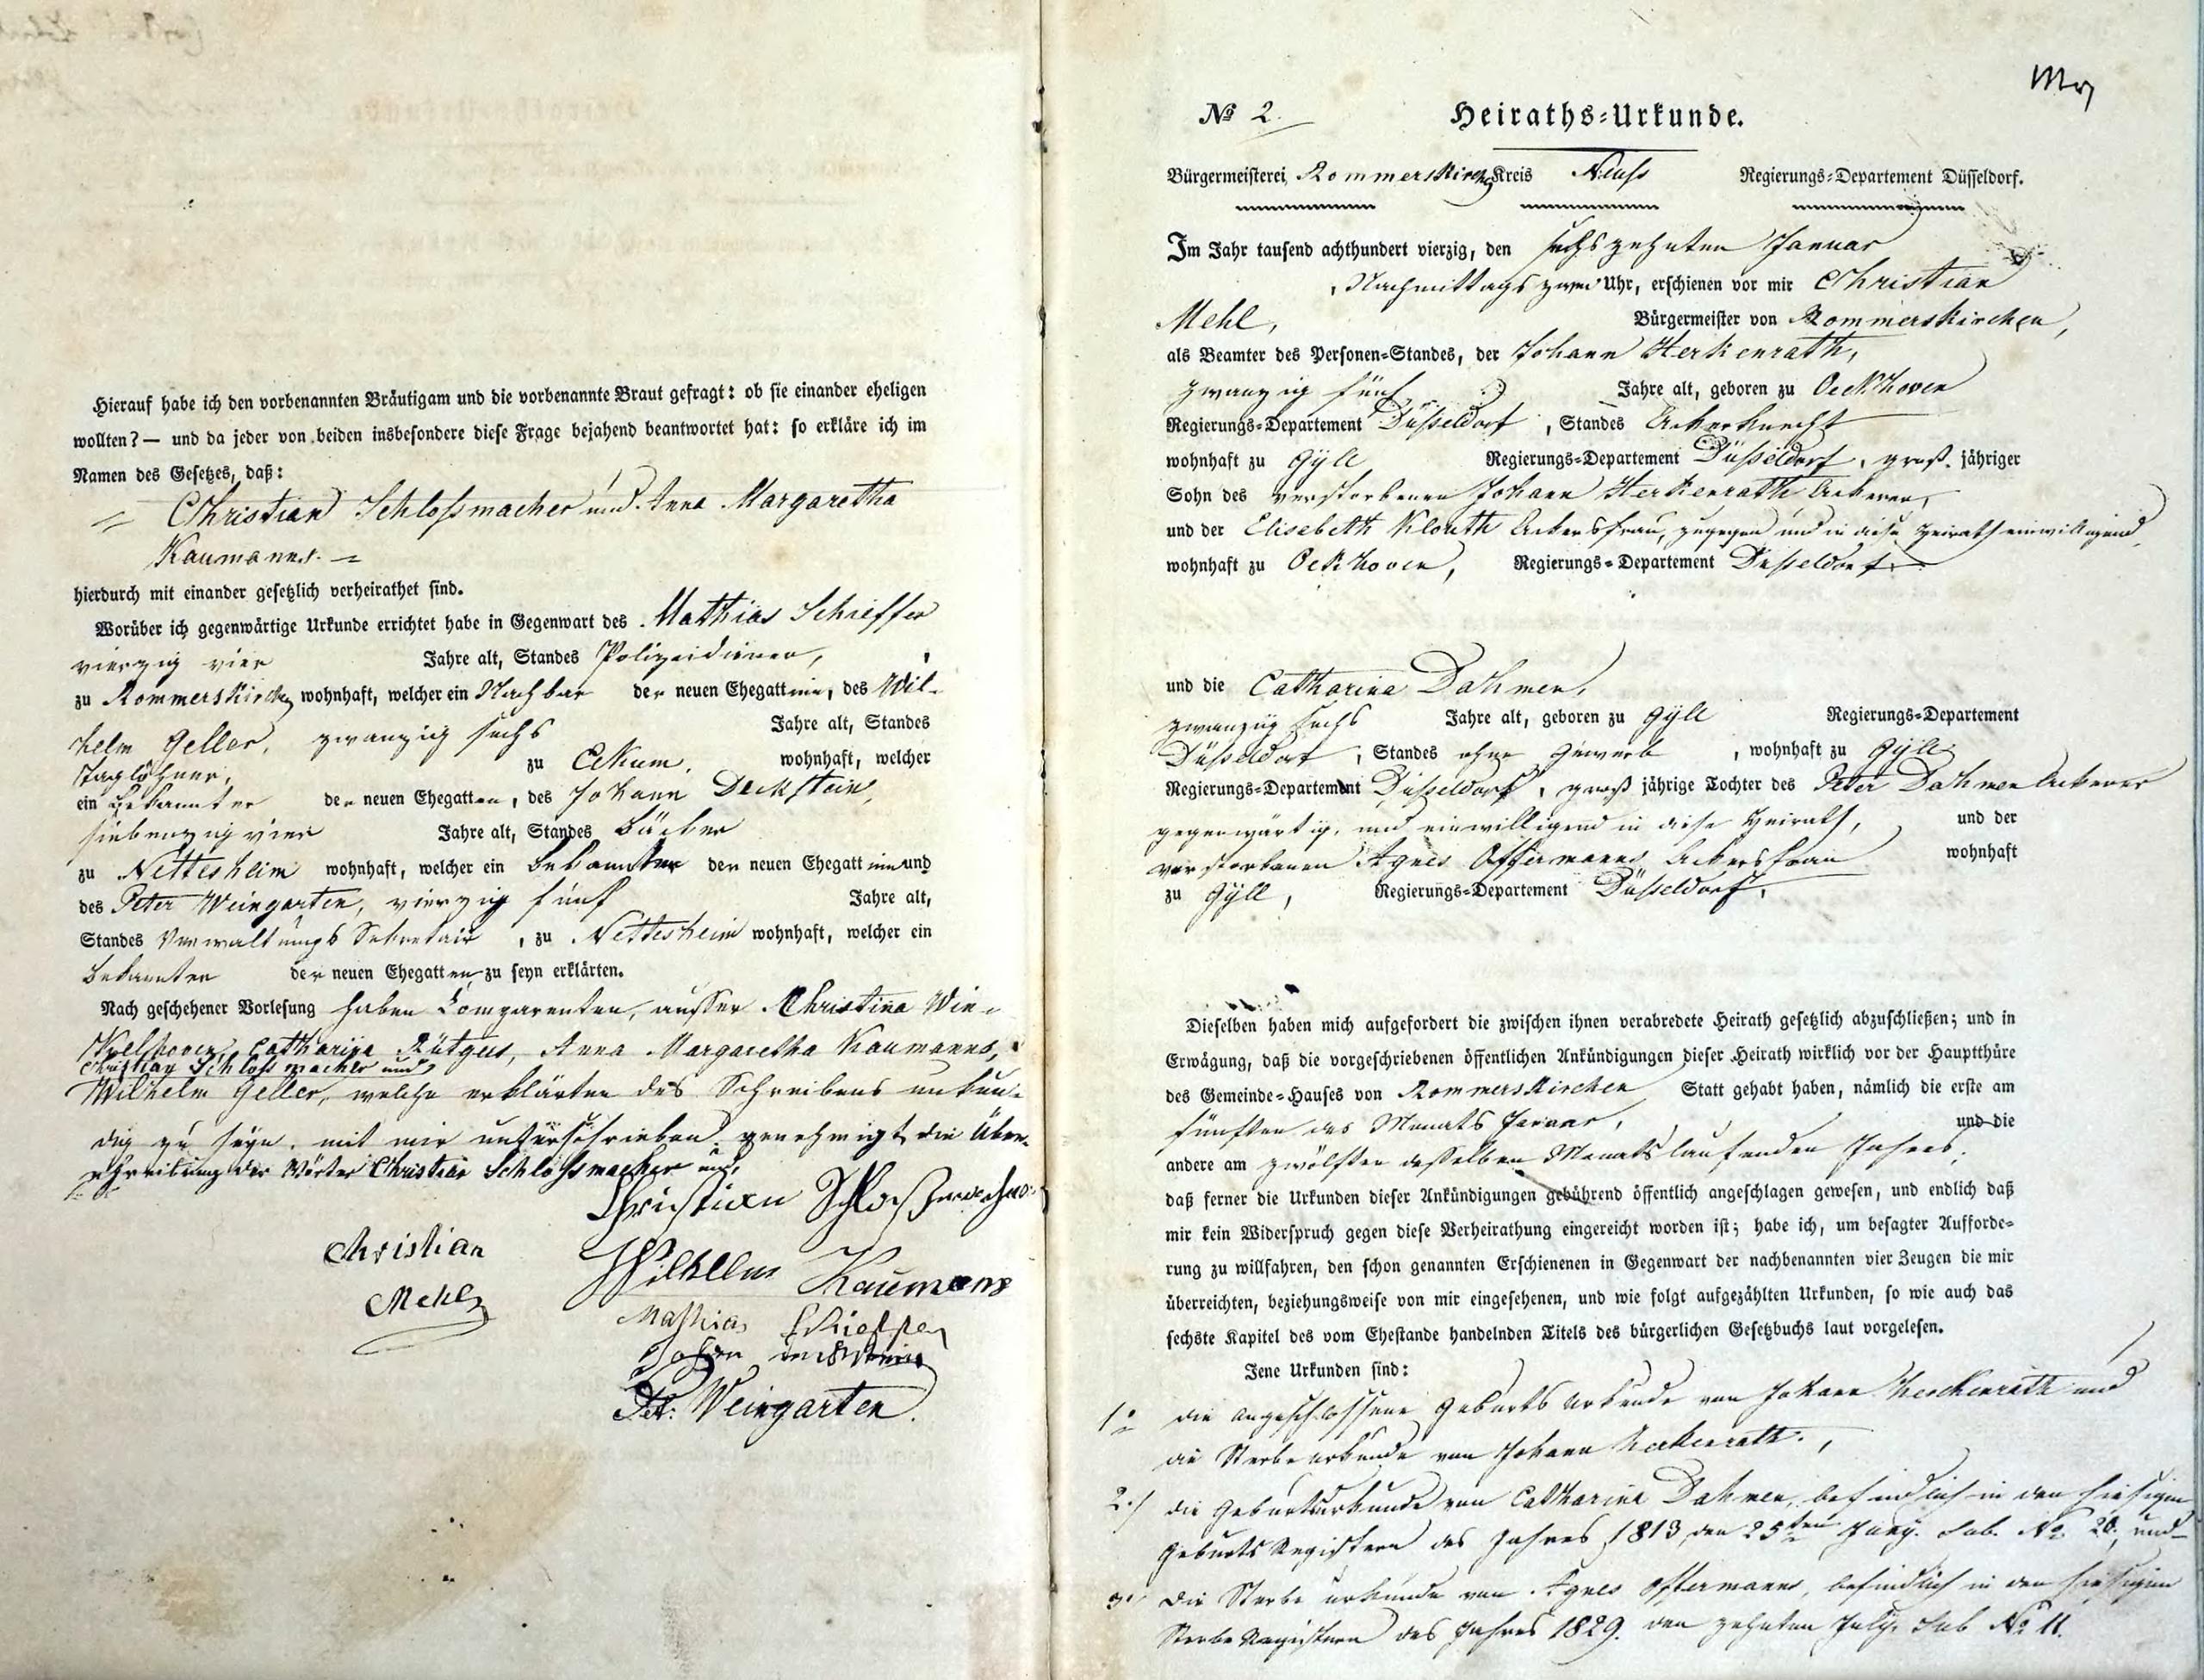 Hierauf habe ich den vorbenannten Bräutigam und die vorbenannte Braut gefragt: ob sie einander eheligen
wollten? — und da jeder von beiden insbesondere diese Frage bejahend beantwortet hat: so erkläre ich im
Namen des Gesetzes, daß:
Christian Schlossmacher und Anna Margaretha
Kaumanns.
hierdurch mit einander gesetzlich verheirathet sind.
Worüber ich gegenwärtige Urkunde errichtet habe in Gegenwart des Mathias Schieffer
vierzig vier Jahre alt, Standes Polizeidiener,
zu Rommerskirchen wohnhaft, welcher ein Nachbar der neuen Ehegattinn, des Wil-
helm Geller, zwanzig sechs Jahre alt, Standes
Taglöhner, zu Eckum, wohnhaft, welcher
ein Bekannter der neuen Ehegatten, des Johann Deckstein,
siebenzig vier Jahre alt, Standes Bäcker
zu Nettesheim wohnhaft, welcher ein Bekannter der neuen Ehegattinn und
des Peter Weingarten, vierzig fünf Jahre alt,
Standes Verwaltungs Sekretair, zu Nettesheim wohnhaft, welcher ein
Bekannter der neuen Ehegatten zu seyn erklärten.
Nach geschehener Vorlesung haben Komparenten, ausser Christina Win-
Catharina Rütgers, Anna Margaretha Kaumanns,
Christian Schlossmacher und
Wilhelm Geller, welche erklärten des Schreibens unkun-
dig zu seyn, mit mir unterschrieben. genehmigt die Über-
schreibung der Wörter Christian Schlossmacher und,
Christian Schloßmacher
Christian Mehl
Wilhelm Kaumans
Mathias Schieffer
Johan
Pet: Weingarten.
№ 2. Heiraths-Urkunde.
Bürgermeisterei Rommerskirchen Kreis Neuss Regierungs-Departement Düsseldorf.
Im Jahr tausend achthundert vierzig, den sechszehnten Januar
Nachmittags zwei Uhr, erschienen vor mir Christian
Mehl, Bürgermeister von Rommerskirchen,
als Beamter des Personen-Standes, der Johann Herkenrath,
zwanzig fünf Jahre alt, geboren zu Oeckhoven
Regierungs-Departement Düsseldorf, Standes Ackerknecht
wohnhaft zu Gyll Regierungs-Departement Düsseldorf, groß-jähriger
Sohn des verstorbenen Johann Herkenrath Ackerer,
und der Elisabeth Klouth Ackersfrau, zugegen und in diese Heirath einwilligend,
wohnhaft zu Oekhoven, Regierungs-Departement Düsseldorf.
und die Catharina Dahmen,
zwanzig sechs Jahre alt, geboren zu Gyll Regierungs-Departement
Düsseldorf, Standes ohne Gewerb, wohnhaft zu Gyll
Regierungs-Departement Düsseldorf, groß jährige Tochter des Peter Dahmen Ackerer
gegenwärtig, und einwilligend in diese Heirath, und der
verstorbenen Agnes Offermanns Ackersfrau wohnhaft
zu Gyll, Regierungs-Departement Düsseldorf,
Dieselben haben mich aufgefordert die zwischen ihnen verabredete Heirath gesetzlich abzuschließen; und in
Erwägung, daß die vorgeschriebenen öffentlichen Ankündigungen dieser Heirath wirklich vor der Hauptthüre
des Gemeinde-Hauses von Rommerskirchen Statt gehabt haben, nämlich die erste am
fünften des Monats Januar, und die
andere am zwölften desselben Monats laufenden Jahres,
daß ferner die Urkunden dieser Ankündigungen gebührend öffentlich angeschlagen gewesen, und endlich daß
mir kein Widerspruch gegen diese Verheirathung eingereicht worden ist; habe ich, um besagter Aufforde-
rung zu willfahren, den schon genannten Erschienenen in Gegenwart der nachbenannten vier Zeugen die mir
überreichten, beziehungsweise von mir eingesehenen, und wie folgt aufgezählten Urkunden, so wie auch das
sechste Kapitel des vom Ehestande handelnden Titels des bürgerlichen Gesetzbuchs laut vorgelesen.
Jene Urkunden sind:
1. die angeschlossene Geburts Urkunde von Johann Herkenrath und
die Sterbeurkunde von Johann Herkenrath.,
2./ die Geburtsurkunde von Catharina Dahmen, befindlich in den hiesigen
Geburts Registern des Jahres 1813 den 25ten Juny. Sub. No. 20, und
3. Die Sterbe urkunde von Agnes Offermanns, befindlich in den hiesigen
Sterbe Registern des Jahres 1829. den zehnten July. Sub No 11.